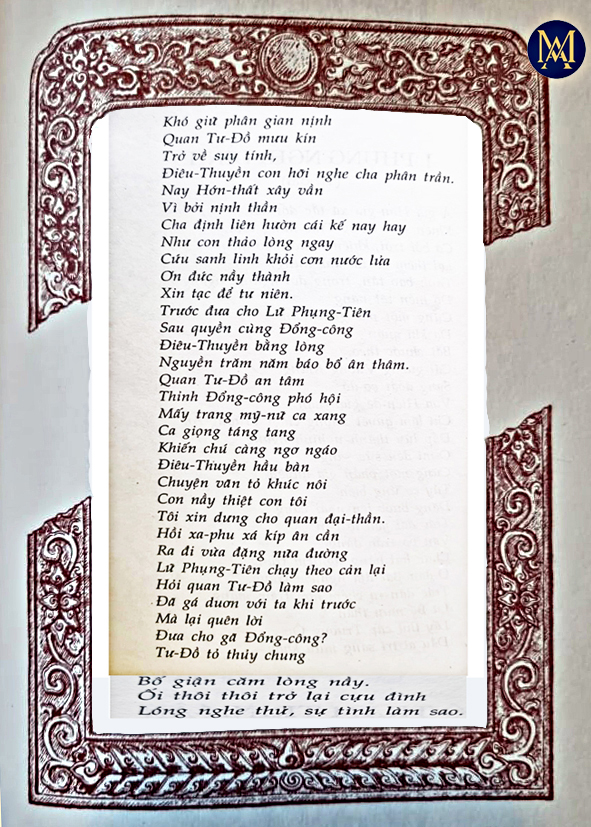 MA
Khó giữ phân gian nịnh
Quan Tư-Đồ mưu kín
Trở về suy tính,
Điêu-Thuyền con hỡi nghe cha phân trần.
Nay Hớn-thất xây vần
Vì bởi nịnh thần
Cha định liên hườn cái kế nay hay
Như con thảo lòng ngay
Cứu sanh linh khỏi cơn nước lửa
Ơn đức nầy thành
Xin tạc để tư niên.
Trước đưa cho Lữ Phụng-Tiên
Sau quyền cùng Đổng-công
Điêu-Thuyền bằng lòng
Nguyền trăm năm báo bổ ân thâm.
Quan Tư-Đồ an tâm
Thỉnh Đổng-công phó hội
Mấy trang mỹ-nữ ca xang
Ca giọng táng tang
Khiến chú càng ngơ ngáo
Điêu-Thuyền hầu bàn
Chuyện vãn tỏ khúc nôi
Con nầy thiệt con tôi
Tôi xin dưng cho quan đại-thần.
Hồi xa-phu xá kíp ân cần
Ra đi vừa đặng nửa đường
Lữ Phụng-Tiên chạy theo cản lại
Hỏi quan Tư-Đồ làm sao
Đã gá duơn với ta khi trước
Mà lại quên lời
Đưa cho gã Đổng-công?
Tư-Đồ tỏ thủy chung
Bố giận căm lòng nầy.
Ối thôi thôi trở lại cựu đình
Lóng nghe thử, sự tình làm sao.